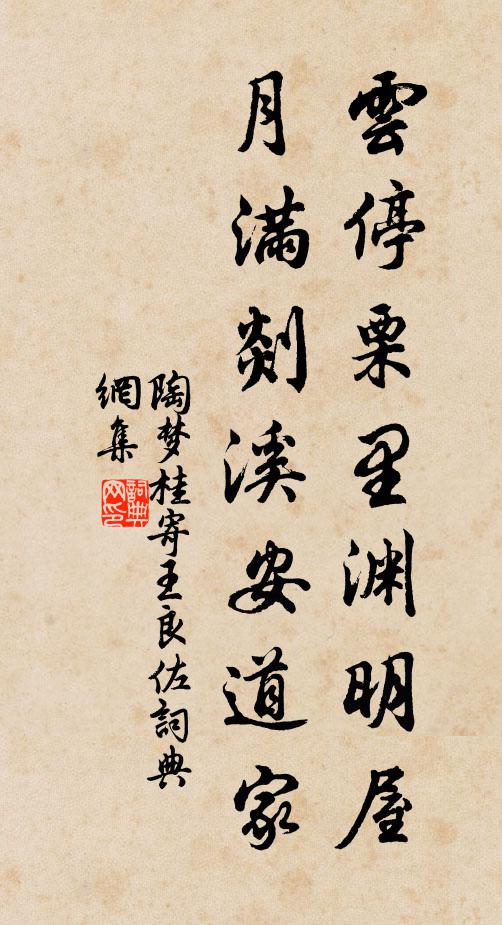 雲停栗里渊明屋
月滿剡溪安道家
陶梦桂寄王良佐詞典
網集
詞典
网印